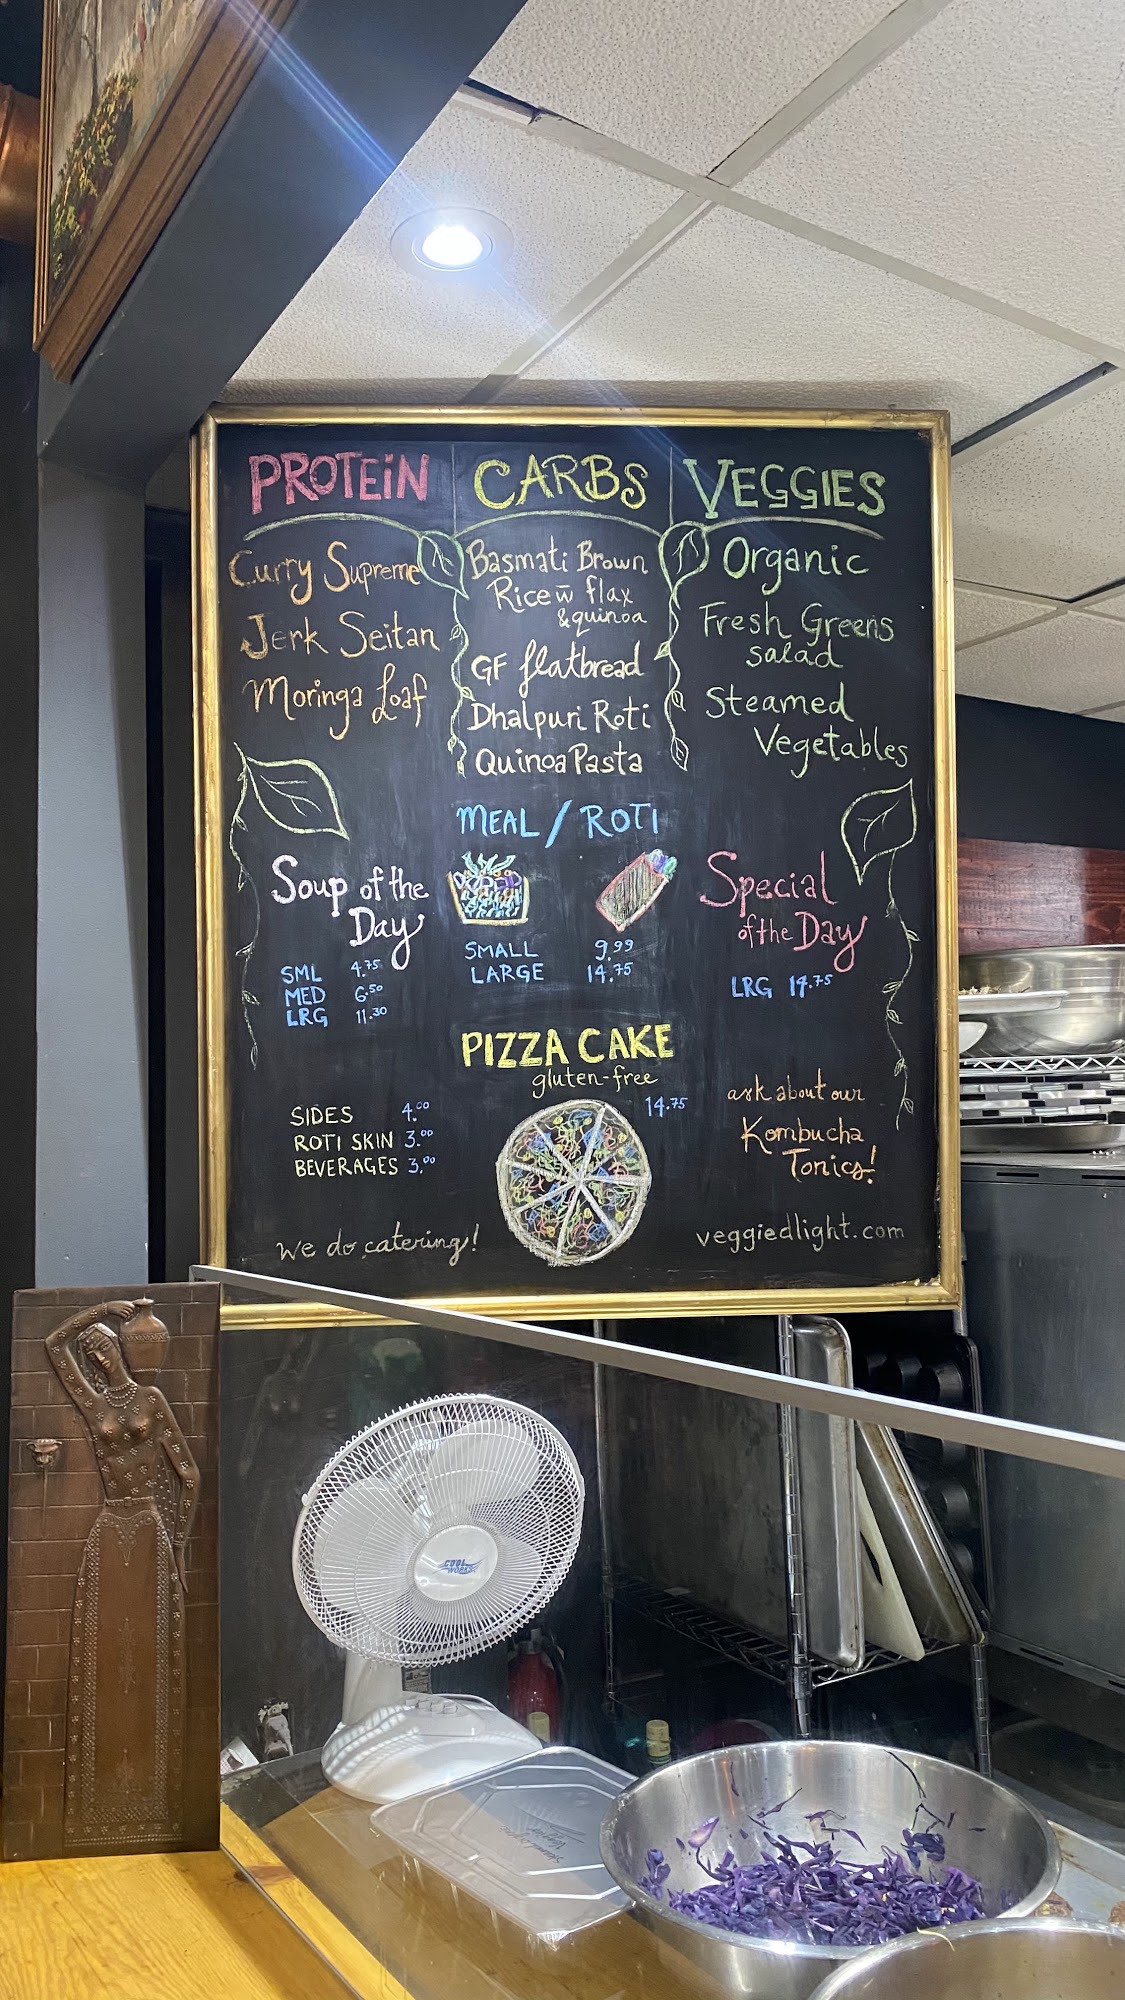 PROTEIN
Curry Supreme
Jerk Seitan
Moringa Loaf
CARBS
Basmati Brown
Rice w̄ flax
& quinoa
GF flatbread
Dhalpuri Roti
Quinoa Pasta
VEGGIES
Organic
Fresh Greens
salad
Steamed
Vegetables
MEAL / ROTI
SMALL 9.99
LARGE 14.75
Soup of the
Day
SML 4.75
MED 6.50
LRG 11.30
Special
of the Day
LRG 14.75
PIZZA CAKE
gluten-free
14.75
SIDES 4.00
ROTI SKIN 3.00
BEVERAGES 3.00
ask about our
Kombucha
Tonics!
we do catering!
veggiedlight.com
COOL
WORKS